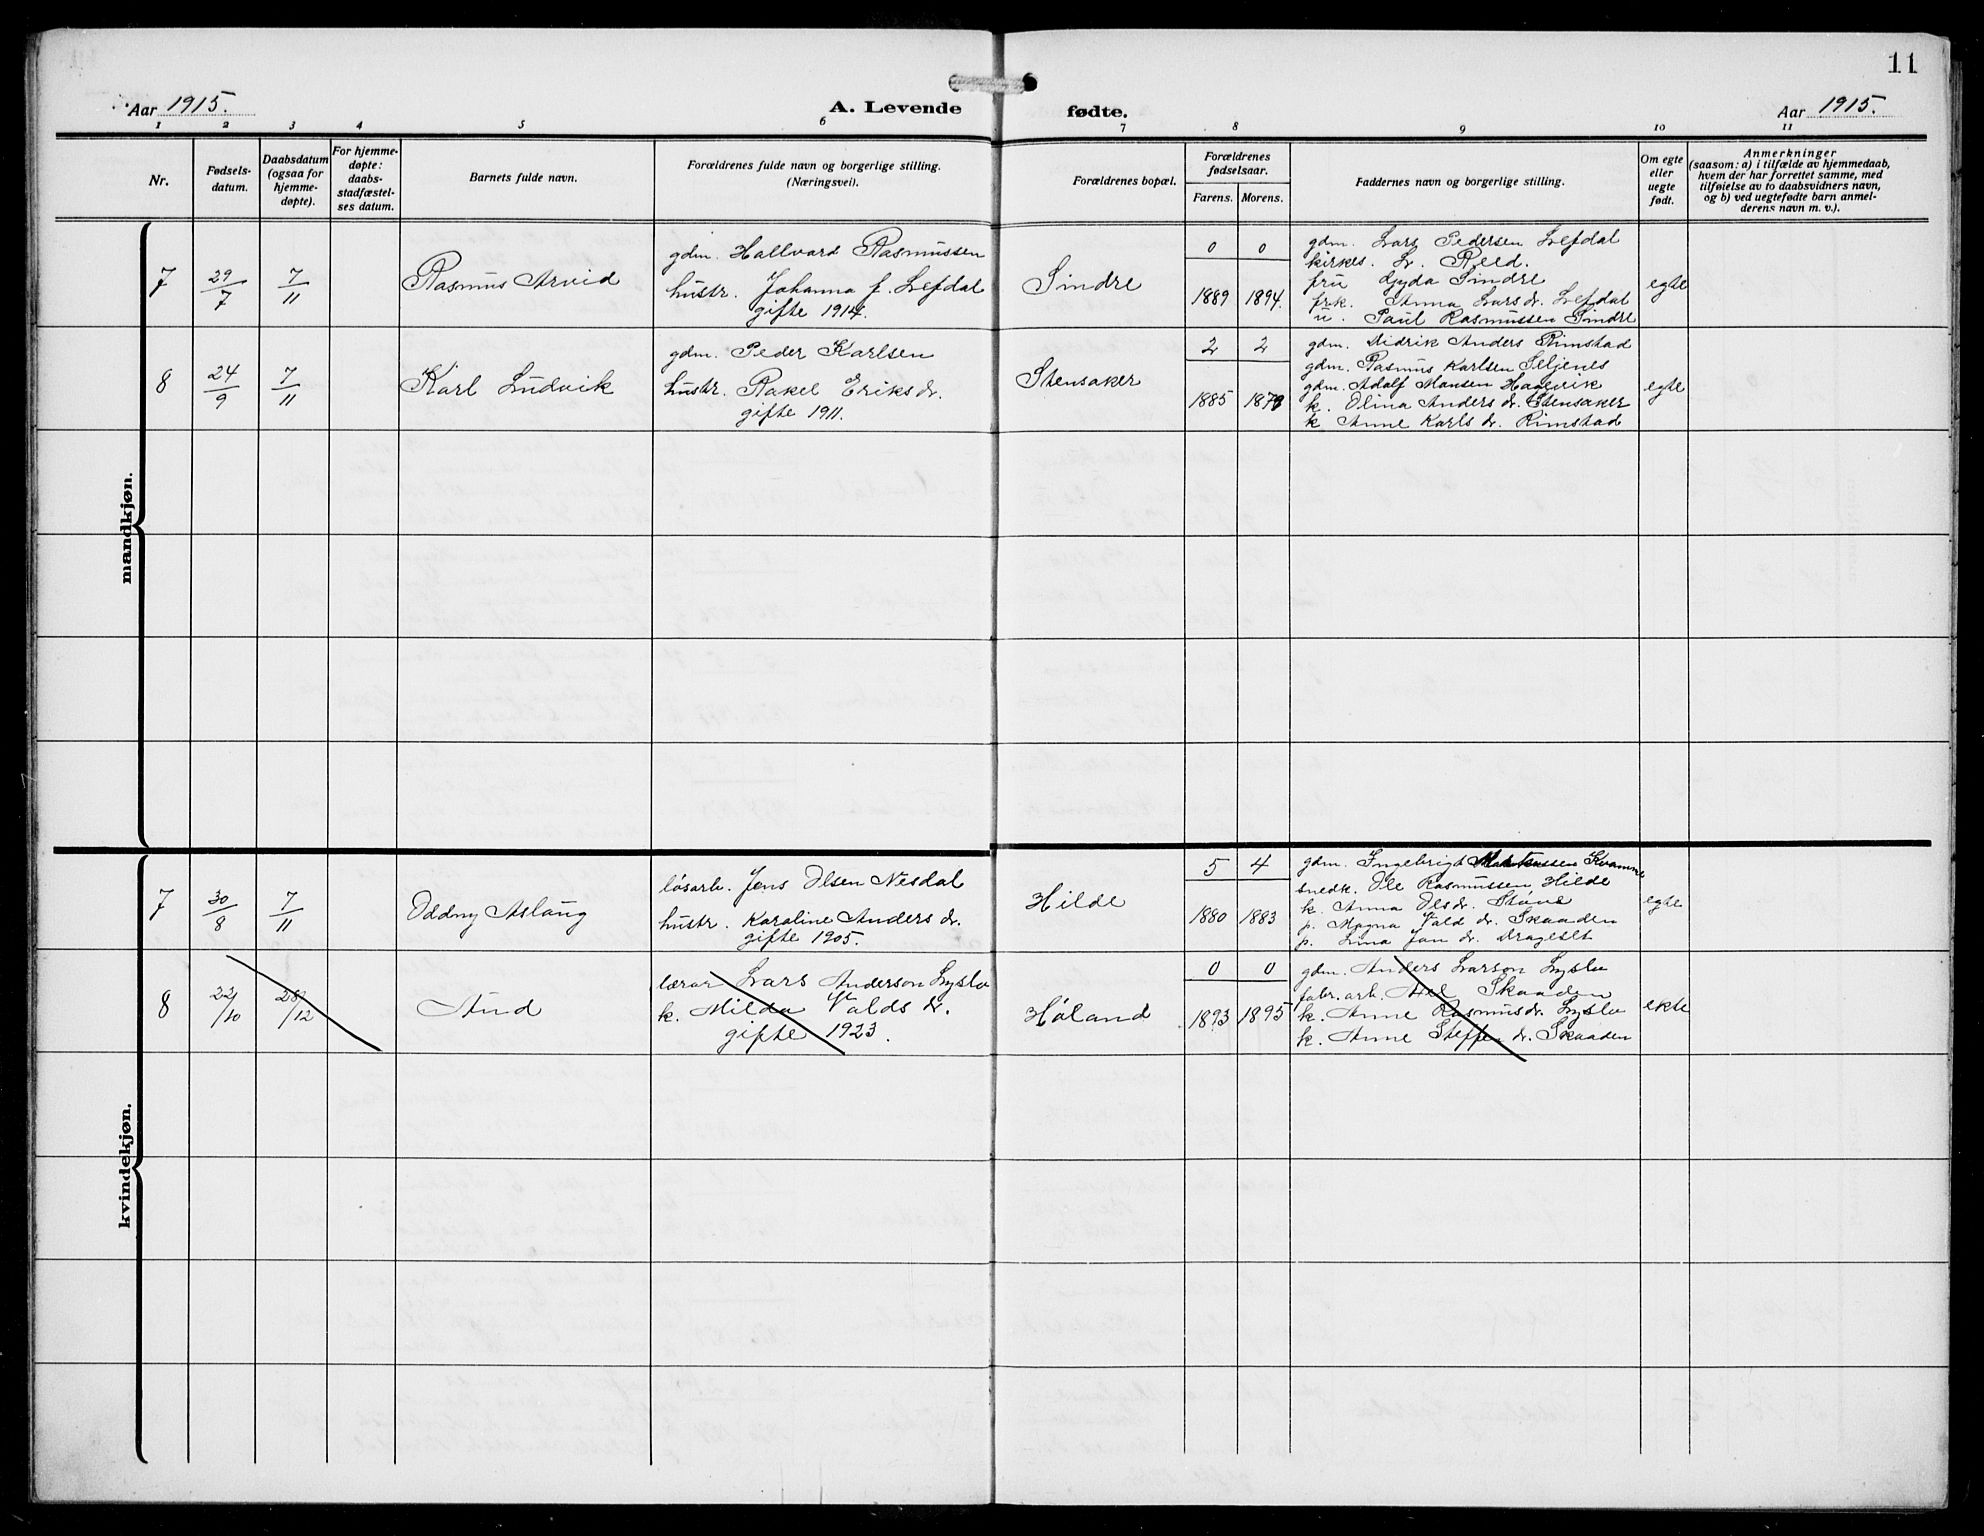 11
Aar 1915.
A. Levende fødte.
Aar 1915.
1 2 3 4 5 6 7 8 9 10 11
Nr.
Fødsels-
datum.
Daabsdatum
(ogsaa for
hjemme-
døpte).
For hjemme-
døpte:
daabs-
stadfæstel-
ses datum.
Barnets fulde navn.
Forældrenes fulde navn og borgerlige stilling.
(Næringsvei).
Forældrenes bopæl.
Forældrenes
fødselsaar.
Farens. Morens.
Faddernes navn og borgerlige stilling.
Om egte
eller
uegte
født.
Anmerkninger
(saasom: a) i tilfælde av hjemmedaab,
hvem der har forrettet samme, med
tilføielse av to daabsvidners navn,
og b) ved uegtefødte barn anmel-
derens navn m. v.).
mandkjøn.
7
29/7
7/11
Rasmus Arvid
gdm. Hallvard Rasmussen
hustr. Johanna f. Lefdal
gifte 1914.
Sindre
0 0
1889 1894.
gdm. Lars Pedersen Lefdal
kirkes. L. Reed.
fru Gyda Sindre
frk. Anna Lars dr. Lefdal
u. Paul Rasmussen Sindre
egte
8
24/9
7/11
Karl Ludvik
gdm. Peder Karlsen
hustr. Rakel Eriks dr.
gifte 1911.
Stensaker
2 2
1885
gdm. Didrik Anders Rimstad
gdm. Rasmus Karlsen Seljenes
gdm. Adolf Monsen Hagevik
k. Olina Anders dr. Stensaker
k. Anne Karls dr. Rimstad
egte
kvindekjøn.
7
30/8
7/11
Oddny Aslaug
løsarb. Jens Olsen Nesdal
hustr. Karoline Anders dr.
gifte 1905.
Hilde
5 4
1880 1883
gdm. Ingebrigt Kvamme
snedk. Ole Rasmussen Hilde
k. Anna Ols dr. Støne
p. Magna Vald dr. Skaaden
p. Lina Jan dr. Drageset
egte
8
22/10
28/12
Aud
lærar Lars Anderson Lyslo
k. Milda Valds dr.
gifte 1923.
Høland
0 0
1893 1895
gdm. Anders Larson Lyslo
fabr. arb. Skaaden
k. Anne Rasmusdr. Lyslo
k. Anne Steffen dr. Skaaden
ekte